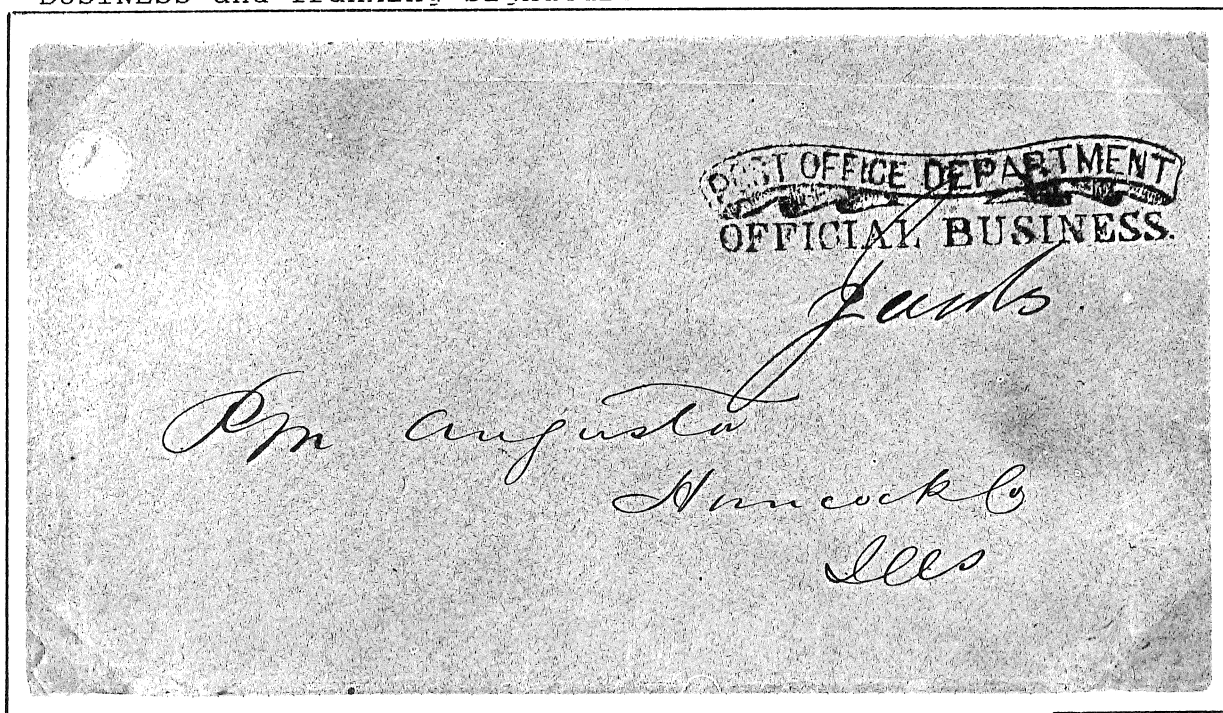 BUSINESS and
POST OFFICE DEPARTMENT
OFFICIAL BUSINESS.
Pm Augusta
Hancock Co
Ills